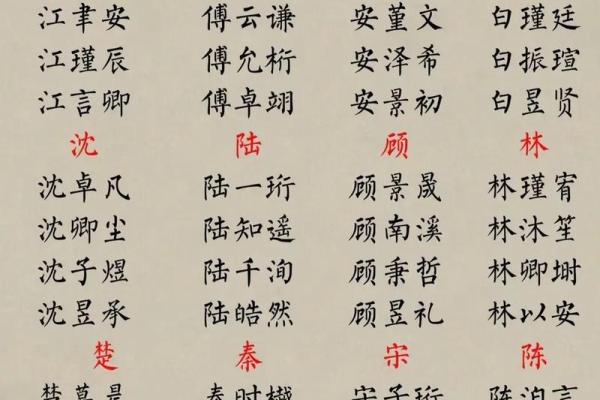 江聿安 傅云谦 安堇文 白瑾廷
江瑾辰 傅允桁 安泽希 白振瑄
江言卿 傅卓翊 安景初 白昱贤
沈 陆 顾 林
沈卓凡 陆一珩 顾景晟 林瑾宥
沈卿尘 陆知遥 顾南溪 林沐笙
沈子煜 陆千洵 顾秉哲 林卿埘
沈昱承 陆皓然 顾昱礼 林以安
楚 秦 宋 陈
楚慕 秦时樾 宋子珩 陈泊言